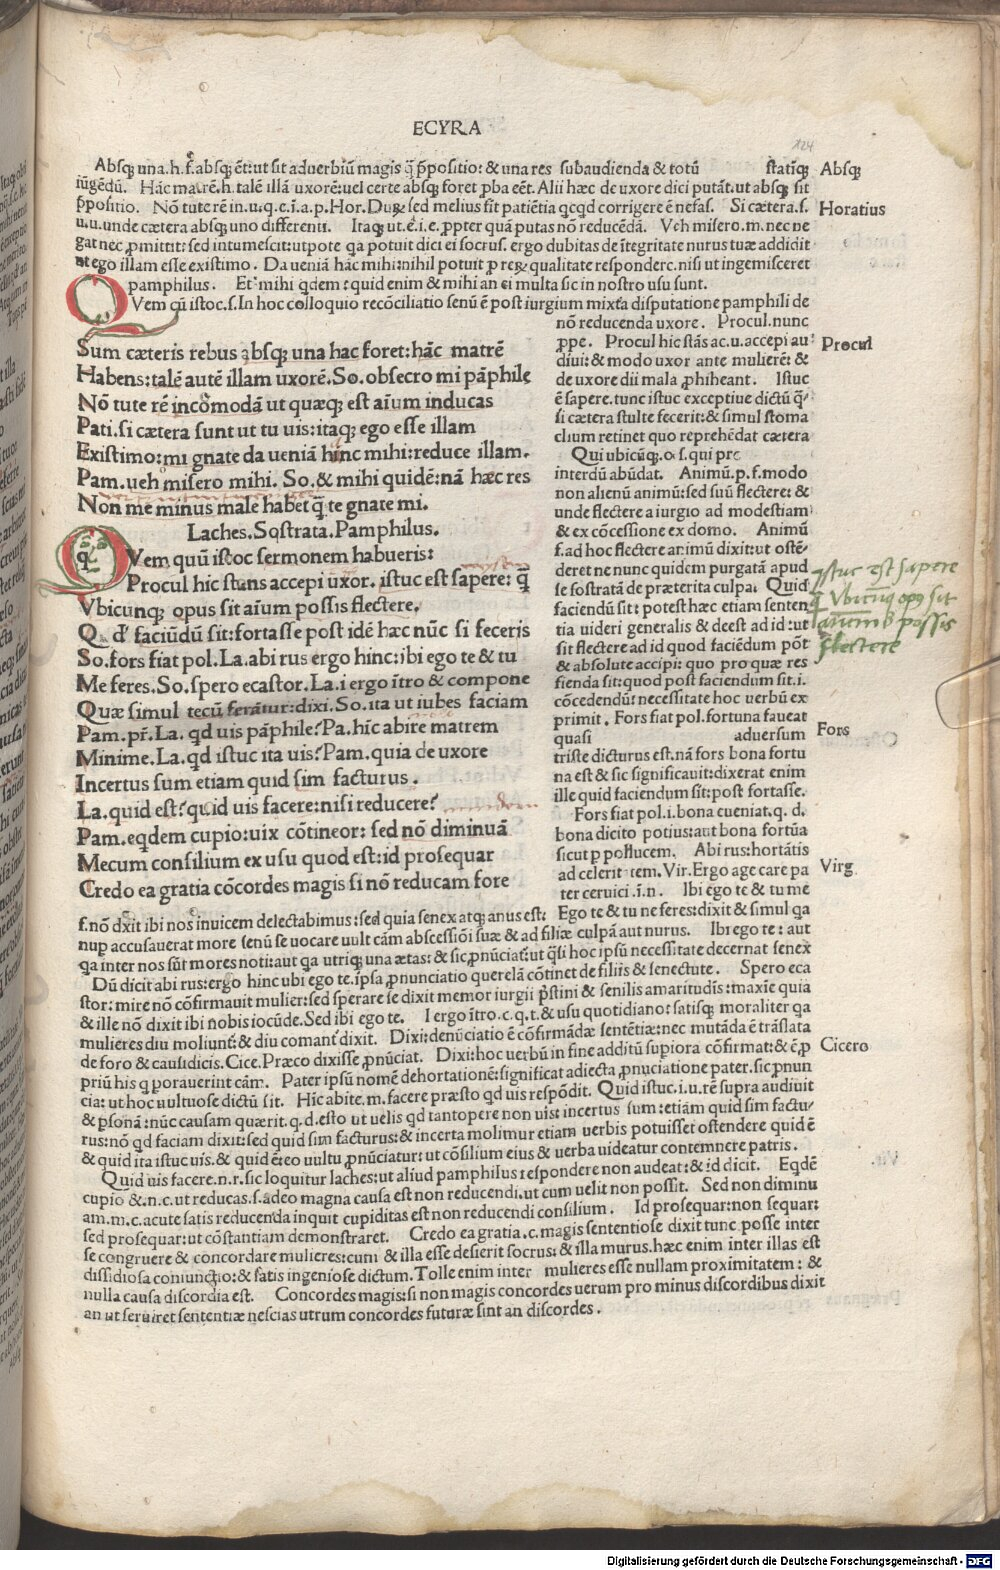 ECYRA
124
Absq; una.h.f.absq; ēt:ut sit aduerbiū magis q̄ p̄positio:& una res subaudienda & totū statīq;
iūgēdū. Hāc matrē.h.talē illā uxorē:uel certe absq; foret ꝓba eēt.Alii hæc de uxore dici putāt.ut absq; sit
p̄positio. Nō tute rē in.u.q.e.ī.a.p.Hor.Duꝝ sed melius fit patiētia qcqd corrigere ē nefas. Si cætera.s.
u.u.unde cætera absq; uno differenti. Itaq; ut.é.i.e.ꝓpter quā putas nō reducēdā. Veh misero.m.nec ne
gat nec ꝓmittit:sed intumescit:utpote qa potuit dici ei socrus.ergo dubitas de ītegritate nurus tuæ addidit
ut ego illam esse existimo. Da ueniā hāc mihi:nihil potuit ꝓ reꝝ qualitate respondere.nisi ut ingemisceret
pamphilus. Et mihi qdem:quid enim & mihi an ei multa sic in nostro usu sunt.
QVem qū istoc.s.In hoc colloquio recōciliatio senū ē post iurgium mixta disputatione pamphili de
nō reducenda uxore. Procul.nunc
ꝓpe. Procul hic stās ac.u.accepi au
diui:& modo uxor ante mulierē: &
de uxore dii mala ꝓhibeant. Istuc
ē sapere.tunc istuc exceptiue dictū q̄
si cætera stulte fecerit:& simul stoma
chum retinet quo reprehēdat cætera
Qui ubicūq;.o.s.qui pro
interdū abūdat. Animū.p.f.modo
non alienū animū:sed suū flectere: &
unde flectere a iurgio ad modestiam
& ex cōcessione ex domo. Animū
f.ad hoc flectere animū dixit:ut ostē-
deret ne nunc quidem purgatā apud
se sostratā de præterita culpa. Quid
faciendū sit: potest hæc etiam senten
tia uideri generalis & deest ad id:ut
sit flectere ad id quod faciēdum pōt
& absolute accipi: quo pro quæ res
fienda sit:quod post faciendum sit.i.
cōcedendū: necessitate hoc uerbū ex
primit. Fors fiat pol.fortuna faueat
quasi aduersum
triste dicturus est.nā fors bona fortu
na est & sic significauit:dixerat enim
ille quid faciendum sit:post fortasse.
Fors fiat pol.i.bona eueniat.q.d.
bona dicito potius:aut bona fortūa
sicut p pollucem. Abi rus:hortātis
ad celeritatem.Vir.Ergo age care pa
ter ceruici.ī.n. Ibi ego te & tu me
Sum cæteris rebus absq; una hac foret:hāc matrē
Habens:talē autē illam uxorē.So.obsecro mi pāphile
Nō tute rē incōmodā ut quæq; est aīum inducas
Pati.si cætera sunt ut tu uis:itaq; ego esse illam
Existimo:mi gnate da ueniā hinc mihi:reduce illam.
Pam.ueh misero mihi. So.& mihi quidē:nā hæc res
Non me minus male habet q̄ te gnate mi.
Laches.Sostrata.Pamphilus.
QVem quū istoc sermonem habueris:
Procul hic stans accepi uxor. istuc est sapere: q̄
Vbicunq; opus sit aīum possis flectere.
Q d' faciūdū sit:fortasse post idē hæc nūc si feceris
So.fors fiat pol.La.abi rus ergo hinc:ibi ego te & tu
Me feres.So.spero ecastor.La.i ergo ītro & compone
Quæ simul tecū ferātur:dixi.So.ita ut iubes faciam
Pam.pr̄.La. qd uis pāphile? Pa.hīc abire matrem
Minime.La.qd istuc ita uis? Pam.quia de uxore
Incertus sum etiam quid sim facturus.
La.quid est? quid uis facere:nisi reducere?
Pam.eqdem cupio:uix cōtineor: sed nō diminuā
Mecum consilium ex usu quod est:id prosequar
Credo ea gratia cōcordes magis si nō reducam fore
f.nō dxit ibi nos inuicem delectabimus:sed quia senex atq; anus est: Ego te & tu ne feres:dixit & simul qa
nup accusauerat more senū se uocare uult cām abscessiōi suæ & ad filiæ culpā aut nurus. Ibi ego te : aut
qa inter nos sūt mores noti:aut qa utriq; una ætas:& sic ꝓnūciat:ut q̄si hoc ipsū necessitate decernat senex
Dū dicit abi rus:ergo hinc ubi ego te.ipsa ꝓnunciatio querelā cōtinet de filiis & senectute. Spero eca
stor:mire nō cōfirmauit mulier:sed sperare se dixit memor iurgii p̄stini & senilis amaritudīs:maxīe quia
& ille nō dixit ibi nobis iocūde.Sed ibi ego te. I ergo ītro.c.q.t.& usu quotidiano:satisq; moraliter qa
mulieres diu moliunt᷑:& diu comant᷑ dixit. Dixi:denūciatio ē cōfirmādæ sentētiæ:nec mutāda ē trāslata
de foro & causidicis.Cice.Præco dixisse ꝓnūciat. Dixi:hoc uerbū in fine additū supiora cōfirmat:& ē ꝓ
priū his q porauerint cām. Pater ipsū nomē dehortationē:significat adiecta ꝓnūciatione pater.sic ꝓnun
cia: ut hoc uultuose dictū sit. Hic abite.m.facere præsto qd uis respōdit. Quid istuc.i.u.rē supra audiuit
& psonā:nūc causam quærit.q.d.esto ut uelis qd tantopere non uis: incertus sum:etiām quid sim factu-
rus:nō qd faciam dixit:sed quid sim facturus:& incerta molimur etiam uerbis potuisset ostendere quid ē
& quid ita istuc uis.& quid ē:eo uultu ꝓnūciatur:ut cōsilium eius & uerba uideatur contemnere patris.
Quid uis facere.n.r.sic loquitur laches:ut aliud pamphilus respondere non audeat:& id dicit. Eqdē
cupio &.n.c.ut reducas.s.adeo magna causa est non reducendi.ut cum uelit non possit. Sed non diminu
am.m.c.acute satis reducenda inquit cupiditas est non reducendi consilium. Id prosequar:non sequar:
sed prosequar:ut cōstantiam demonstraret. Credo ea gratia.c.magis sententiose dixit tunc posse inter
se congruere & concordare mulieres:cum & illa esse desierit socrus:& illa nurus.hæc enim inter illas est
dissidiosa coniunctio:& satis ingeniose dictum.Tolle enim inter mulieres esse nullam proximitatem : &
nulla causa discordia est. Concordes magis:si non magis concordes uerum pro minus discordibus dixit
an ut seruiret sententiæ nescias utrum concordes futuræ sint an discordes.
Absq;
Horatius
Procul
Istuc est sapere
q̄ Vbicūq; opꝰ sit
animū possis
flectere
Fors
Virg.
Cicero
Digitalisierung gefördert durch die Deutsche Forschungsgemeinschaft - DFG